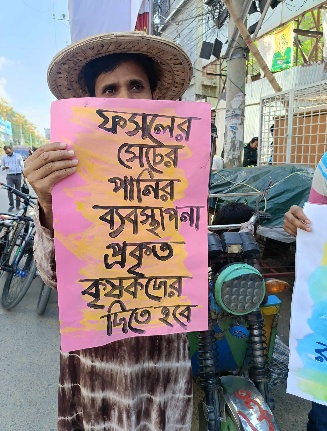 ফসলের
সেচের
পানির
ব্যবস্থাপনা
প্রকৃত
কৃষকদের
দিতে হবে